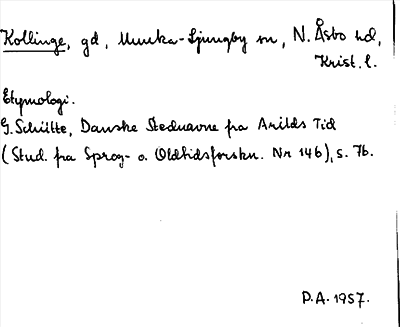 Kollinge, gd, Munka-Ljungby sn, N. Åsbo hd,
Krist. l.
Etymologi.
G. Schütte, Danske Stednavne fra Arilds Tid
(Stud. fra Sprog- o. Oldtidsforskn. Nr 146), s. 76.
P.A. 1957.